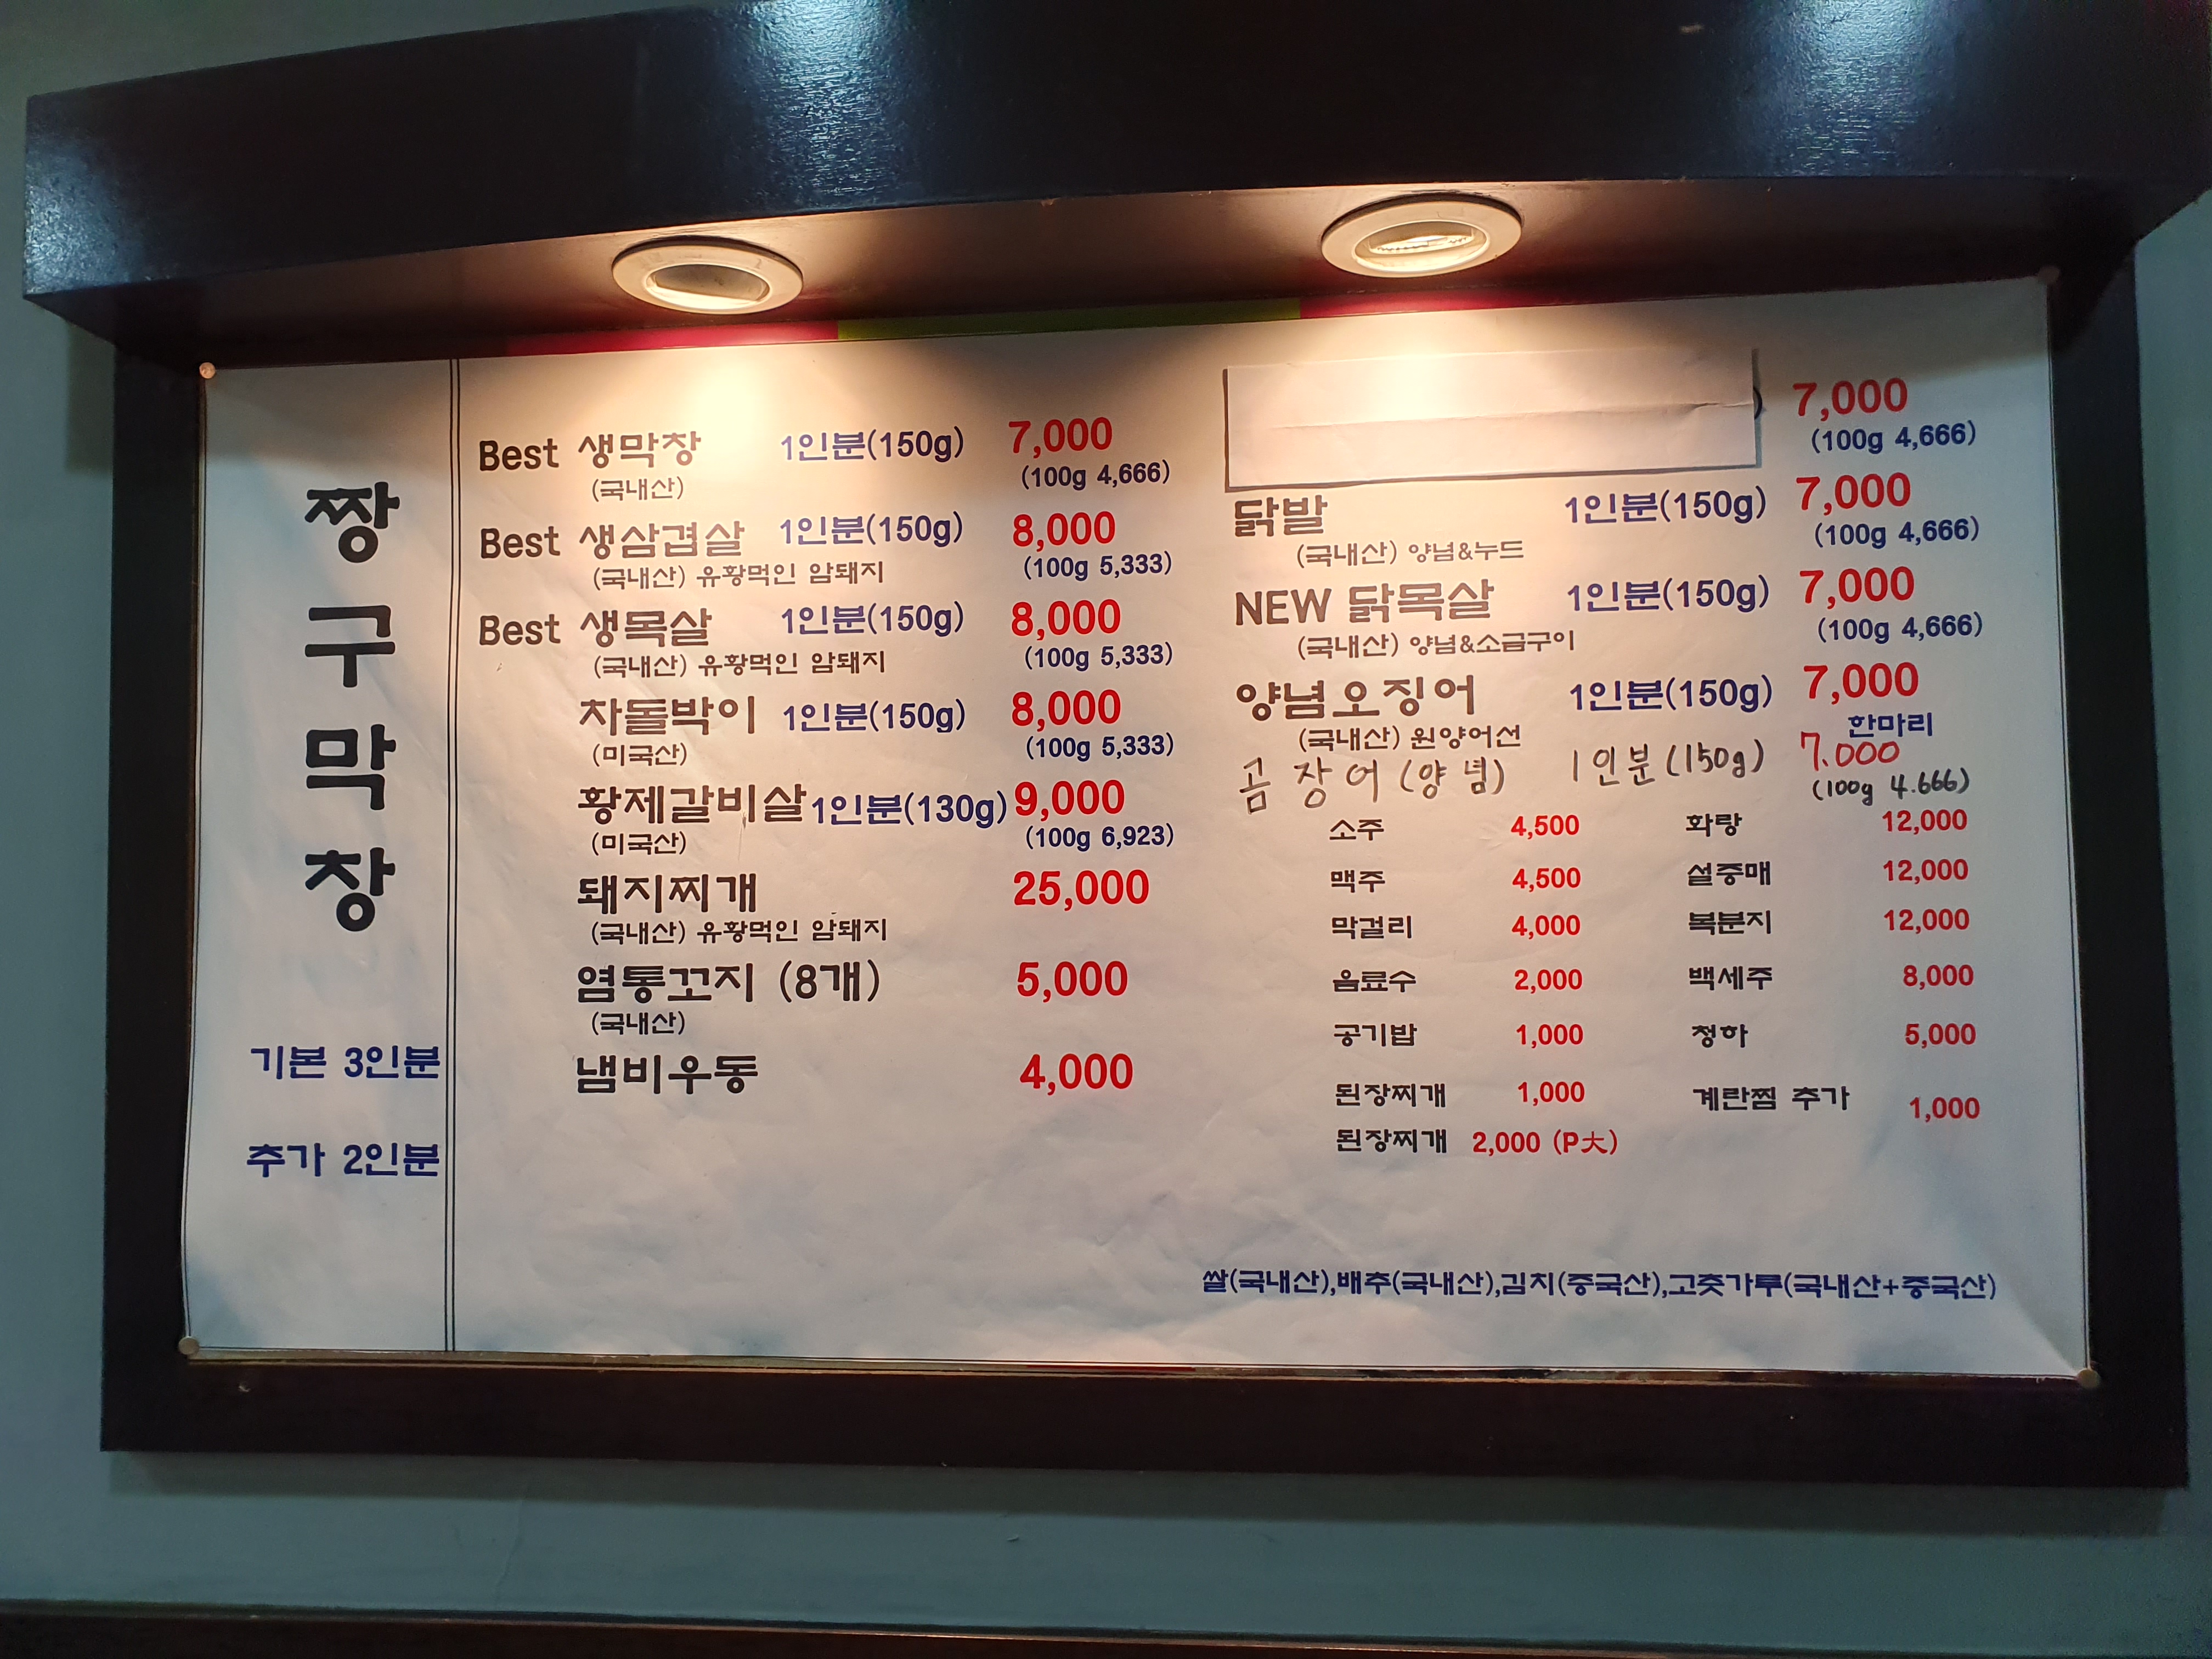 짱구막창
기본 3인분
추가 2인분
Best 생막창 1인분(150g) 7,000
(국내산) (100g 4,666)
Best 생삼겹살 1인분(150g) 8,000
(국내산) 유황먹인 암돼지 (100g 5,333)
Best 생목살 1인분(150g) 8,000
(국내산) 유황먹인 암돼지 (100g 5,333)
차돌박이 1인분(150g) 8,000
(미국산) (100g 5,333)
황제갈비살 1인분(130g) 9,000
(미국산) (100g 6,923)
돼지찌개 25,000
(국내산) 유황먹인 암돼지
염통꼬지 (8개) 5,000
(국내산)
냄비우동 4,000
7,000
(100g 4,666)
닭발 1인분(150g) 7,000
(국내산) 양념&누드 (100g 4,666)
NEW 닭목살 1인분(150g) 7,000
(국내산) 양념&소금구이 (100g 4,666)
양념오징어 1인분(150g) 7,000
(국내산) 원양어선 한마리
곰장어(양념) 1인분(150g) 7.000
(100g 4.666)
소주 4,500 화랑 12,000
맥주 4,500 설중매 12,000
막걸리 4,000 복분지 12,000
음료수 2,000 백세주 8,000
공기밥 1,000 청하 5,000
된장찌개 1,000 계란찜 추가 1,000
된장찌개 2,000 (P大)
쌀(국내산),배추(국내산),김치(중국산),고춧가루(국내산+중국산)